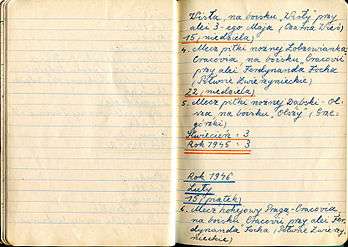 Wisła, na boisku „Wisły" przy
alei 3-ego Maja, (Czarna Wieś)
15, niedziela)
4. Mecz piłki nożnej Łobzowianka
Cracovia na boisku „Cracovii
przy alei Ferdynanda Focha
(Półwsie Zwierzynieckie)
22, niedziela)
5. Mecz piłki nożnej Dąbski - Ol-
sza na boisku „Olszy", (Grze-
górzki)
Kwiecień : 3
Rok 1945 : 3
Rok 1946
Luty
15, (piątek)
1. Mecz hokejowy Praga - Cracovia
na boisku Cracovii przy alei Fer-
dynanda Focha, (Półwsie Zwierzy-
nieckie)